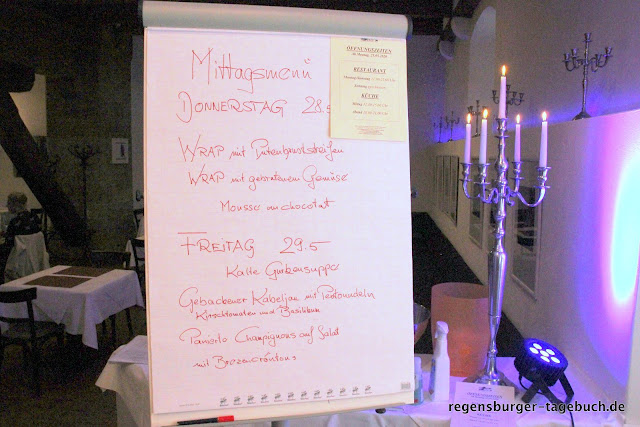 Mittagsmenü
DONNERSTAG 28.5
WRAP mit Putenbruststreifen
WRAP mit gebratenem Gemüse
Mousse au chocolat
FREITAG 29.5
Kalte Gurkensuppe
Gebackener Kabeljau mit Pestonudeln
Kirschtomaten und Basilikum
Panierte Champignons auf Salat
mit Brezencroutons
ÖFFNUNGSZEITEN
RESTAURANT
KÜCHE
regensburger-tagebuch.de